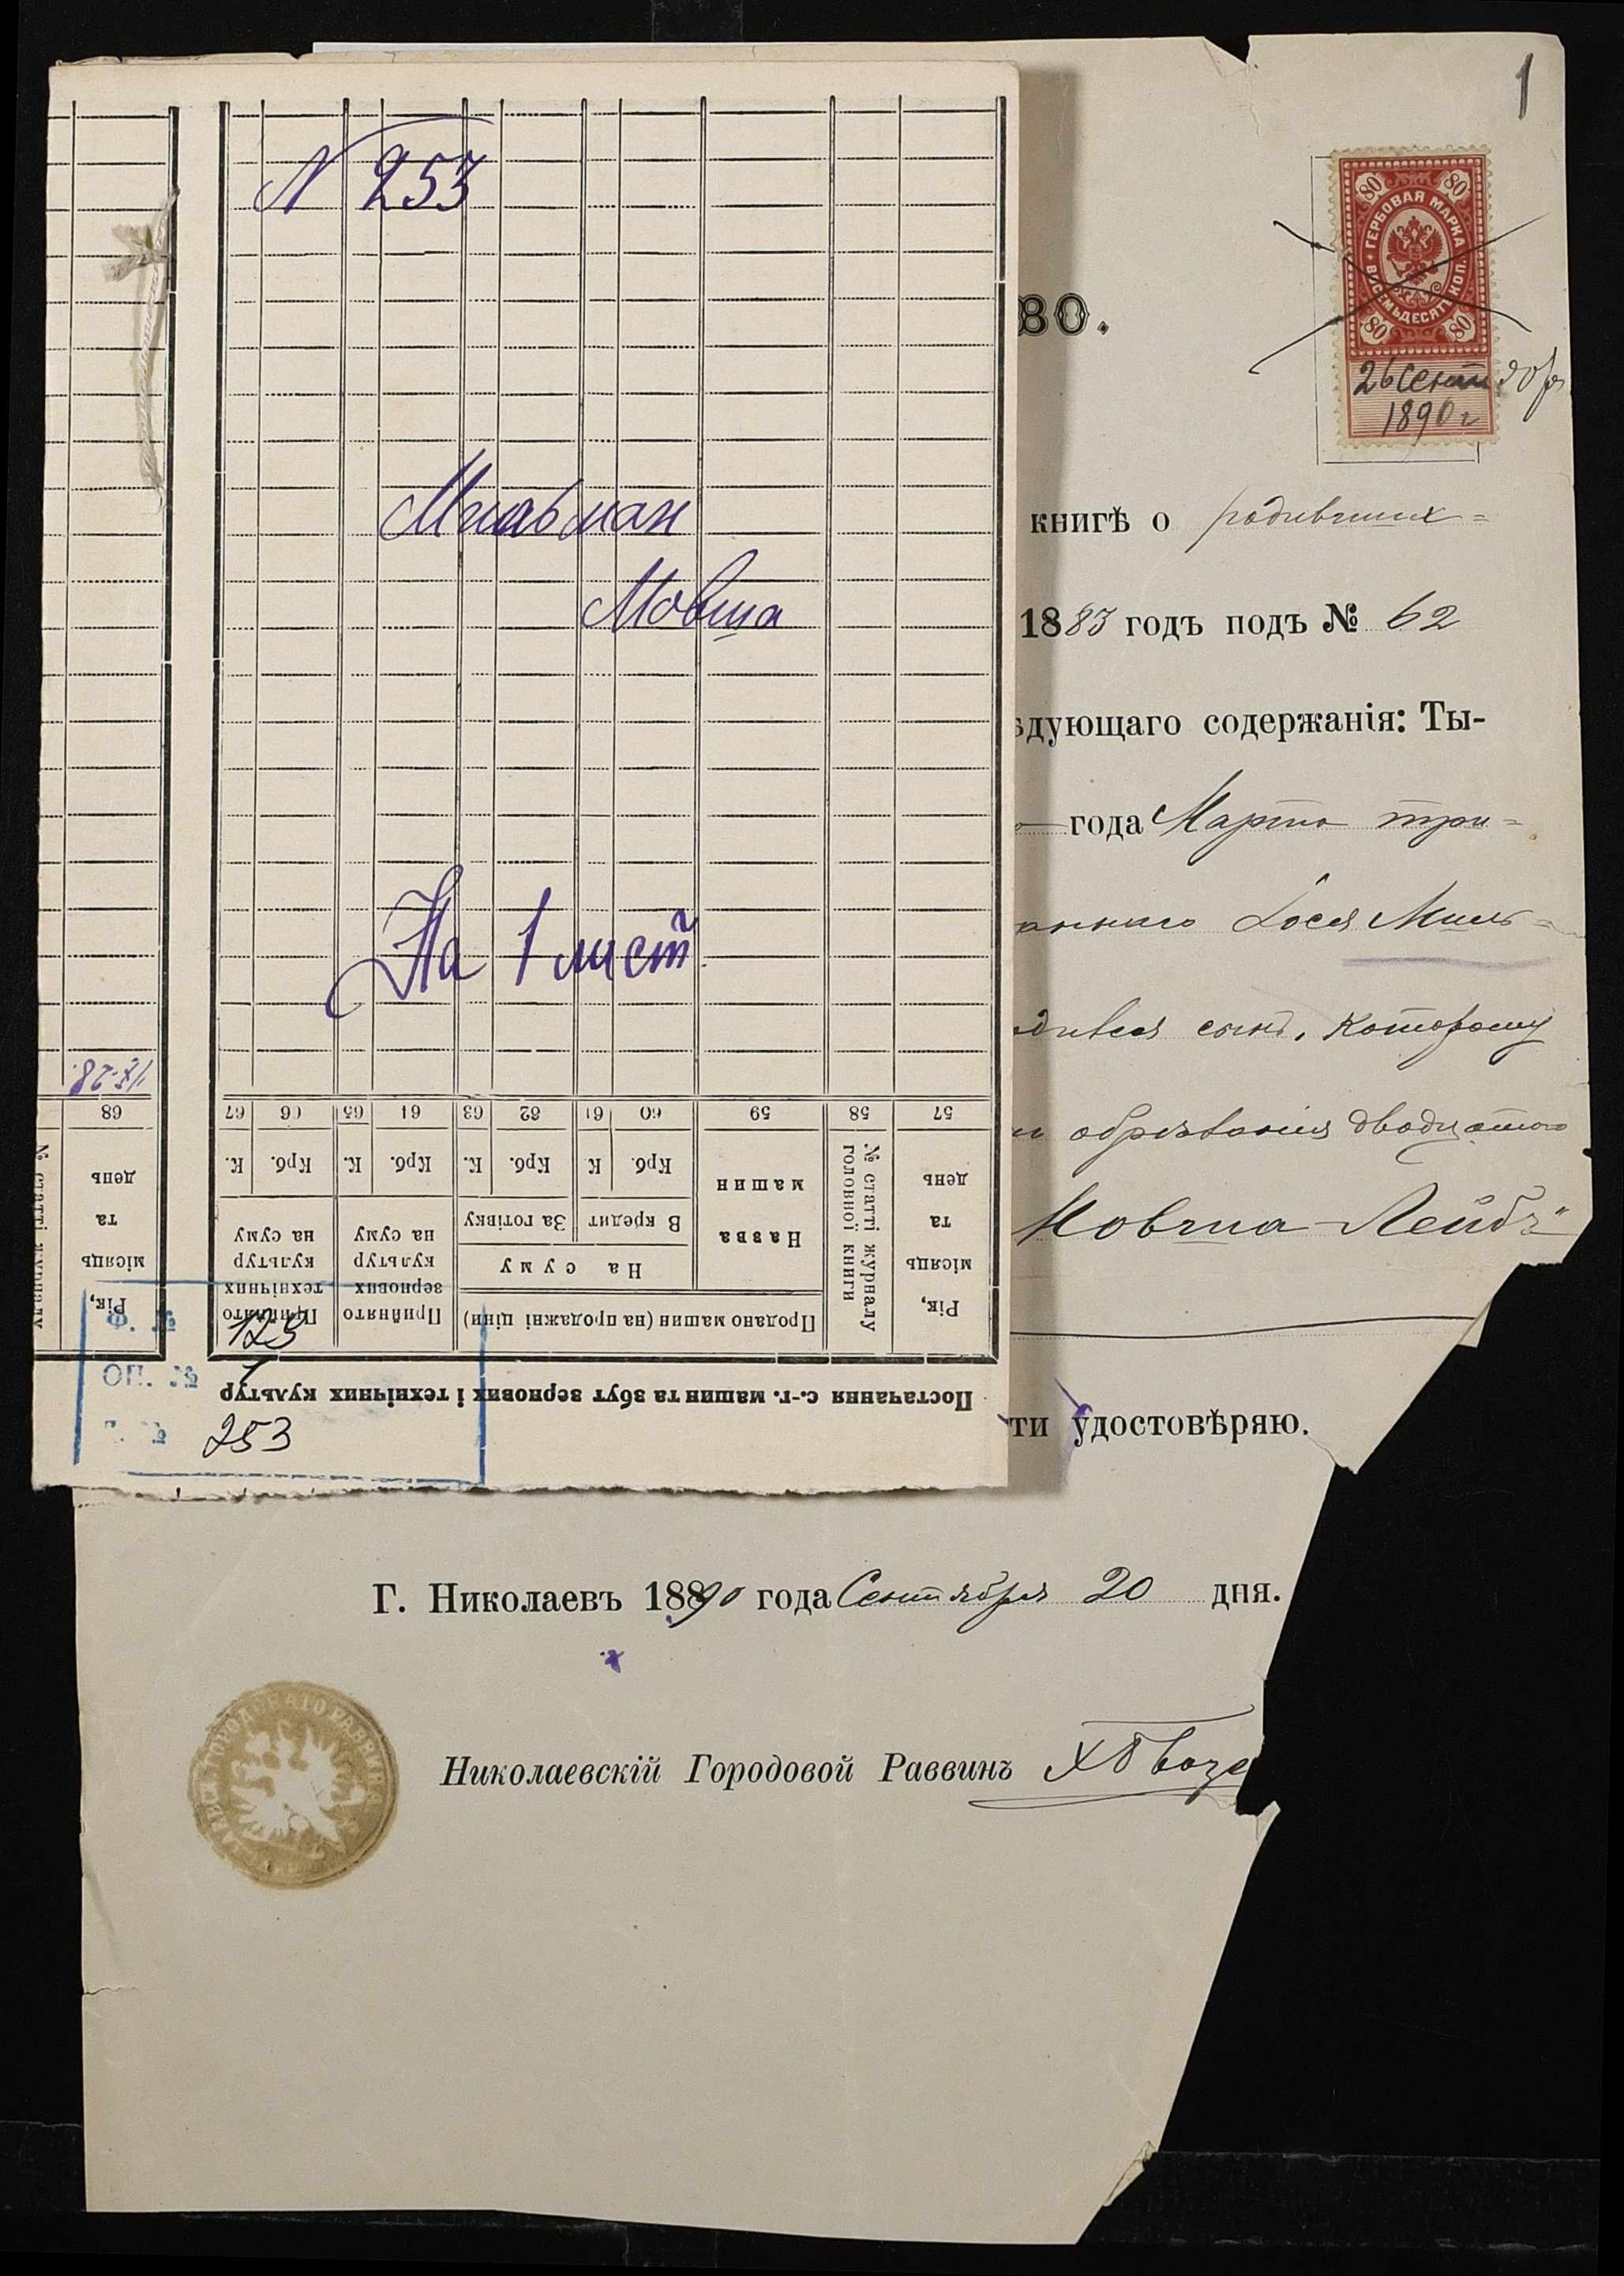 N 253
Мильман
Мовша
На 1 лист
17-28.
68
67
66
65
64
63
62
61
60
59
58
57
К.
Крб.
К.
Крб.
К.
Крб.
К
Крб.
Рік,
місяць
та
день
Прийнято
технічних
культур
на суму
Прийнято
зернових
культур
на суму
Продано машин (на продажні ціни)
На суму
За готівку
В кредит
Назва
машин
№ статті журналу
головної книги
Рік,
місяць
та
день
Постачання с.-г. машин та збут зернових і технічних культур
Ф. №
123
ОП. №
1
253
1
80
80
ГЕРБОВАЯ МАРКА
ВОСЕМЬДЕСЯТЪ КОП.
80
80
26 Сентября
1890 г
во.
книгѣ о родивших=
1883 годъ подъ № 62
ѣдующаго содержанія: Ты-
года Марта три=
Іося Миль=
одился сынъ, которому
обрѣзанія двадцатого
Мовша-Лейбъ"
ти удостовѣряю.
Г. Николаевъ 18890 года Сентября 20 дня.
Николаевскій Городовой Раввинъ